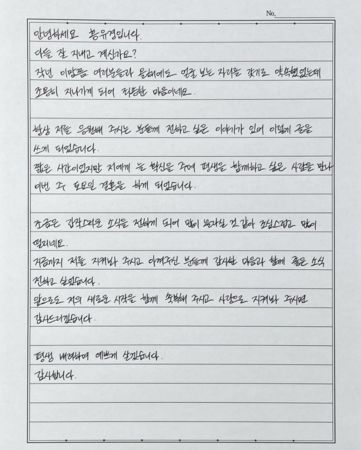 No.
안녕하세요 홍유경입니다.
다들 잘 지내고 계신가요?
작년 이맘쯤 여러분들과 올해에도 얼굴 보는 자리를 갖기로 약속했었는데
조용히 지나가게 되어 적적한 마음이네요.
항상 저를 응원해 주시는 분들께 전하고 싶은 이야기가 있어 이렇게 글을
쓰게 되었습니다.
짧은 시간이었지만 저에게 큰 확신을 주며 평생을 함께하고 싶은 사람을 만나
이번 주 토요일 결혼을 하게 되었습니다.
조금은 갑작스러운 소식을 전하게 되어 많이 놀라실 것 같아 조심스럽고 많이
떨리네요.
지금까지 저를 지켜봐 주시고 아껴주신 분들께 감사한 마음과 함께 좋은 소식
전하고 싶었습니다.
앞으로도 저의 새로운 시작을 함께 축복해 주시고 사랑으로 지켜봐 주시면
감사드리겠습니다.
평생 배려하며 예쁘게 살겠습니다.
감사합니다.